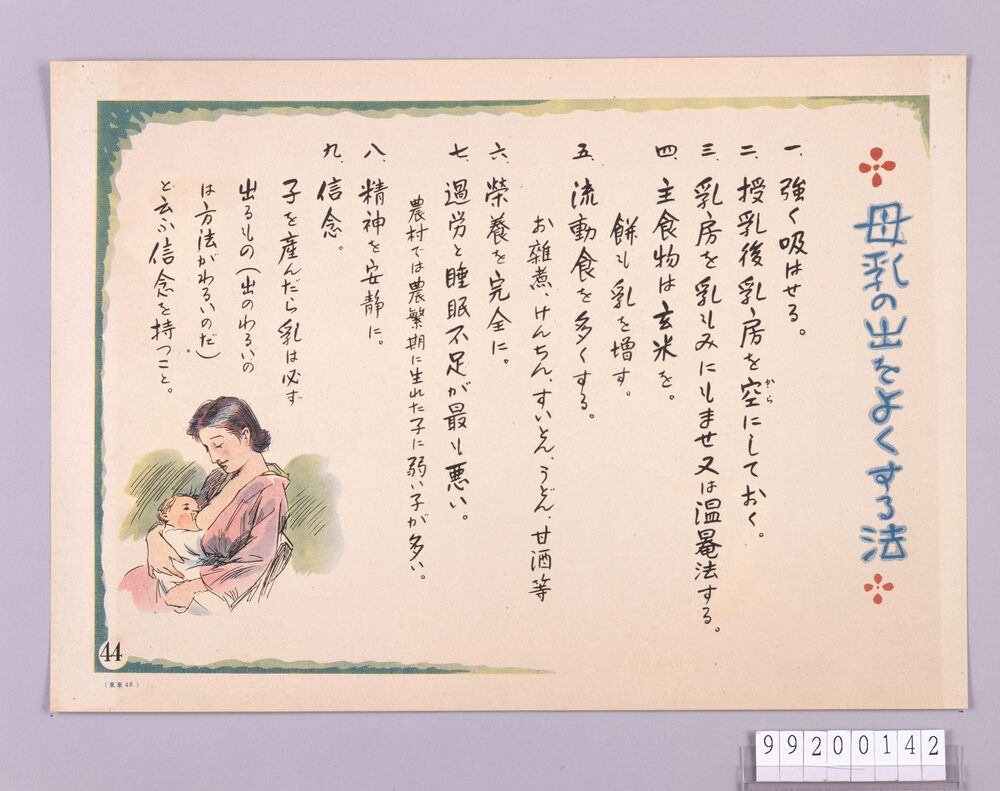 母乳の出をよくする法
一、強く吸はせる。
二、授乳後乳房を空にしておく。
から
三、乳房を乳もみにもませ又は温罨法する。
四、主食物は玄米を。
餅も乳を増す。
五、流動食を多くする。
お雑煮、けんちん、すいとん、うどん、甘酒等
六、榮養を完全に。
七、過労と睡眠不足が最も悪い。
農村では農繁期に生れた子に弱い子が多い。
八、精神を安静に。
九、信念。
子を産んだら乳は必ず
出るもの(出のわるいの
は方法がわるいのだ)
と云ふ信念を持つこと。
44
(東東48)
99200142